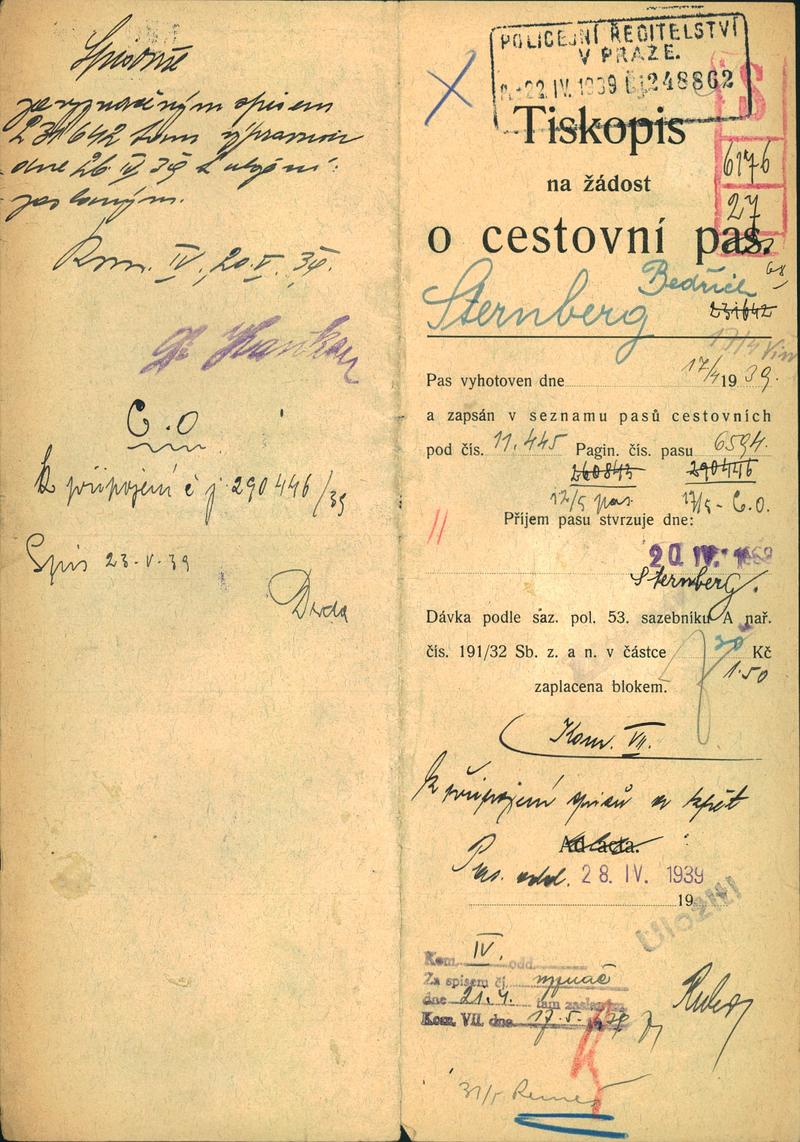 spisem
231642
dne 26. IV. 39
Kom. IV, 20. V. 39.
C.O
K připojení č j 290446/39
Spis 23-V-39
POLICEJNÍ ŘEDITELSTVÍ
V PRAZE.
22. IV. 1939 248862
S
6176
27
Tiskopis
na žádost
o cestovní pas.
Bedřich
Sternberg
231642
17/4
Pas vyhotoven dne 17/4 1939.
a zapsán v seznamu pasů cestovních
pod čís. 11.445 Pagin. čís. pasu 6594.
260843 290446
12/5 pas. 17/5 - C.O.
Příjem pasu stvrzuje dne:
20. IV. 1939
Sternberg.
Dávka podle saz. pol. 53. sazebníku A nař.
čís. 191/32 Sb. z. a n. v částce Kč
1.50
zaplacena blokem.
Kom. VII.
k připojení spisů a zpět
Ad acta.
Pas. odd. 28. IV. 1939
19
Uložiti
Kom. IV. odd.
Za spisem čj.
dne 21.4. tam zaslaným
Kom. VII. dne 17.5.
31/5